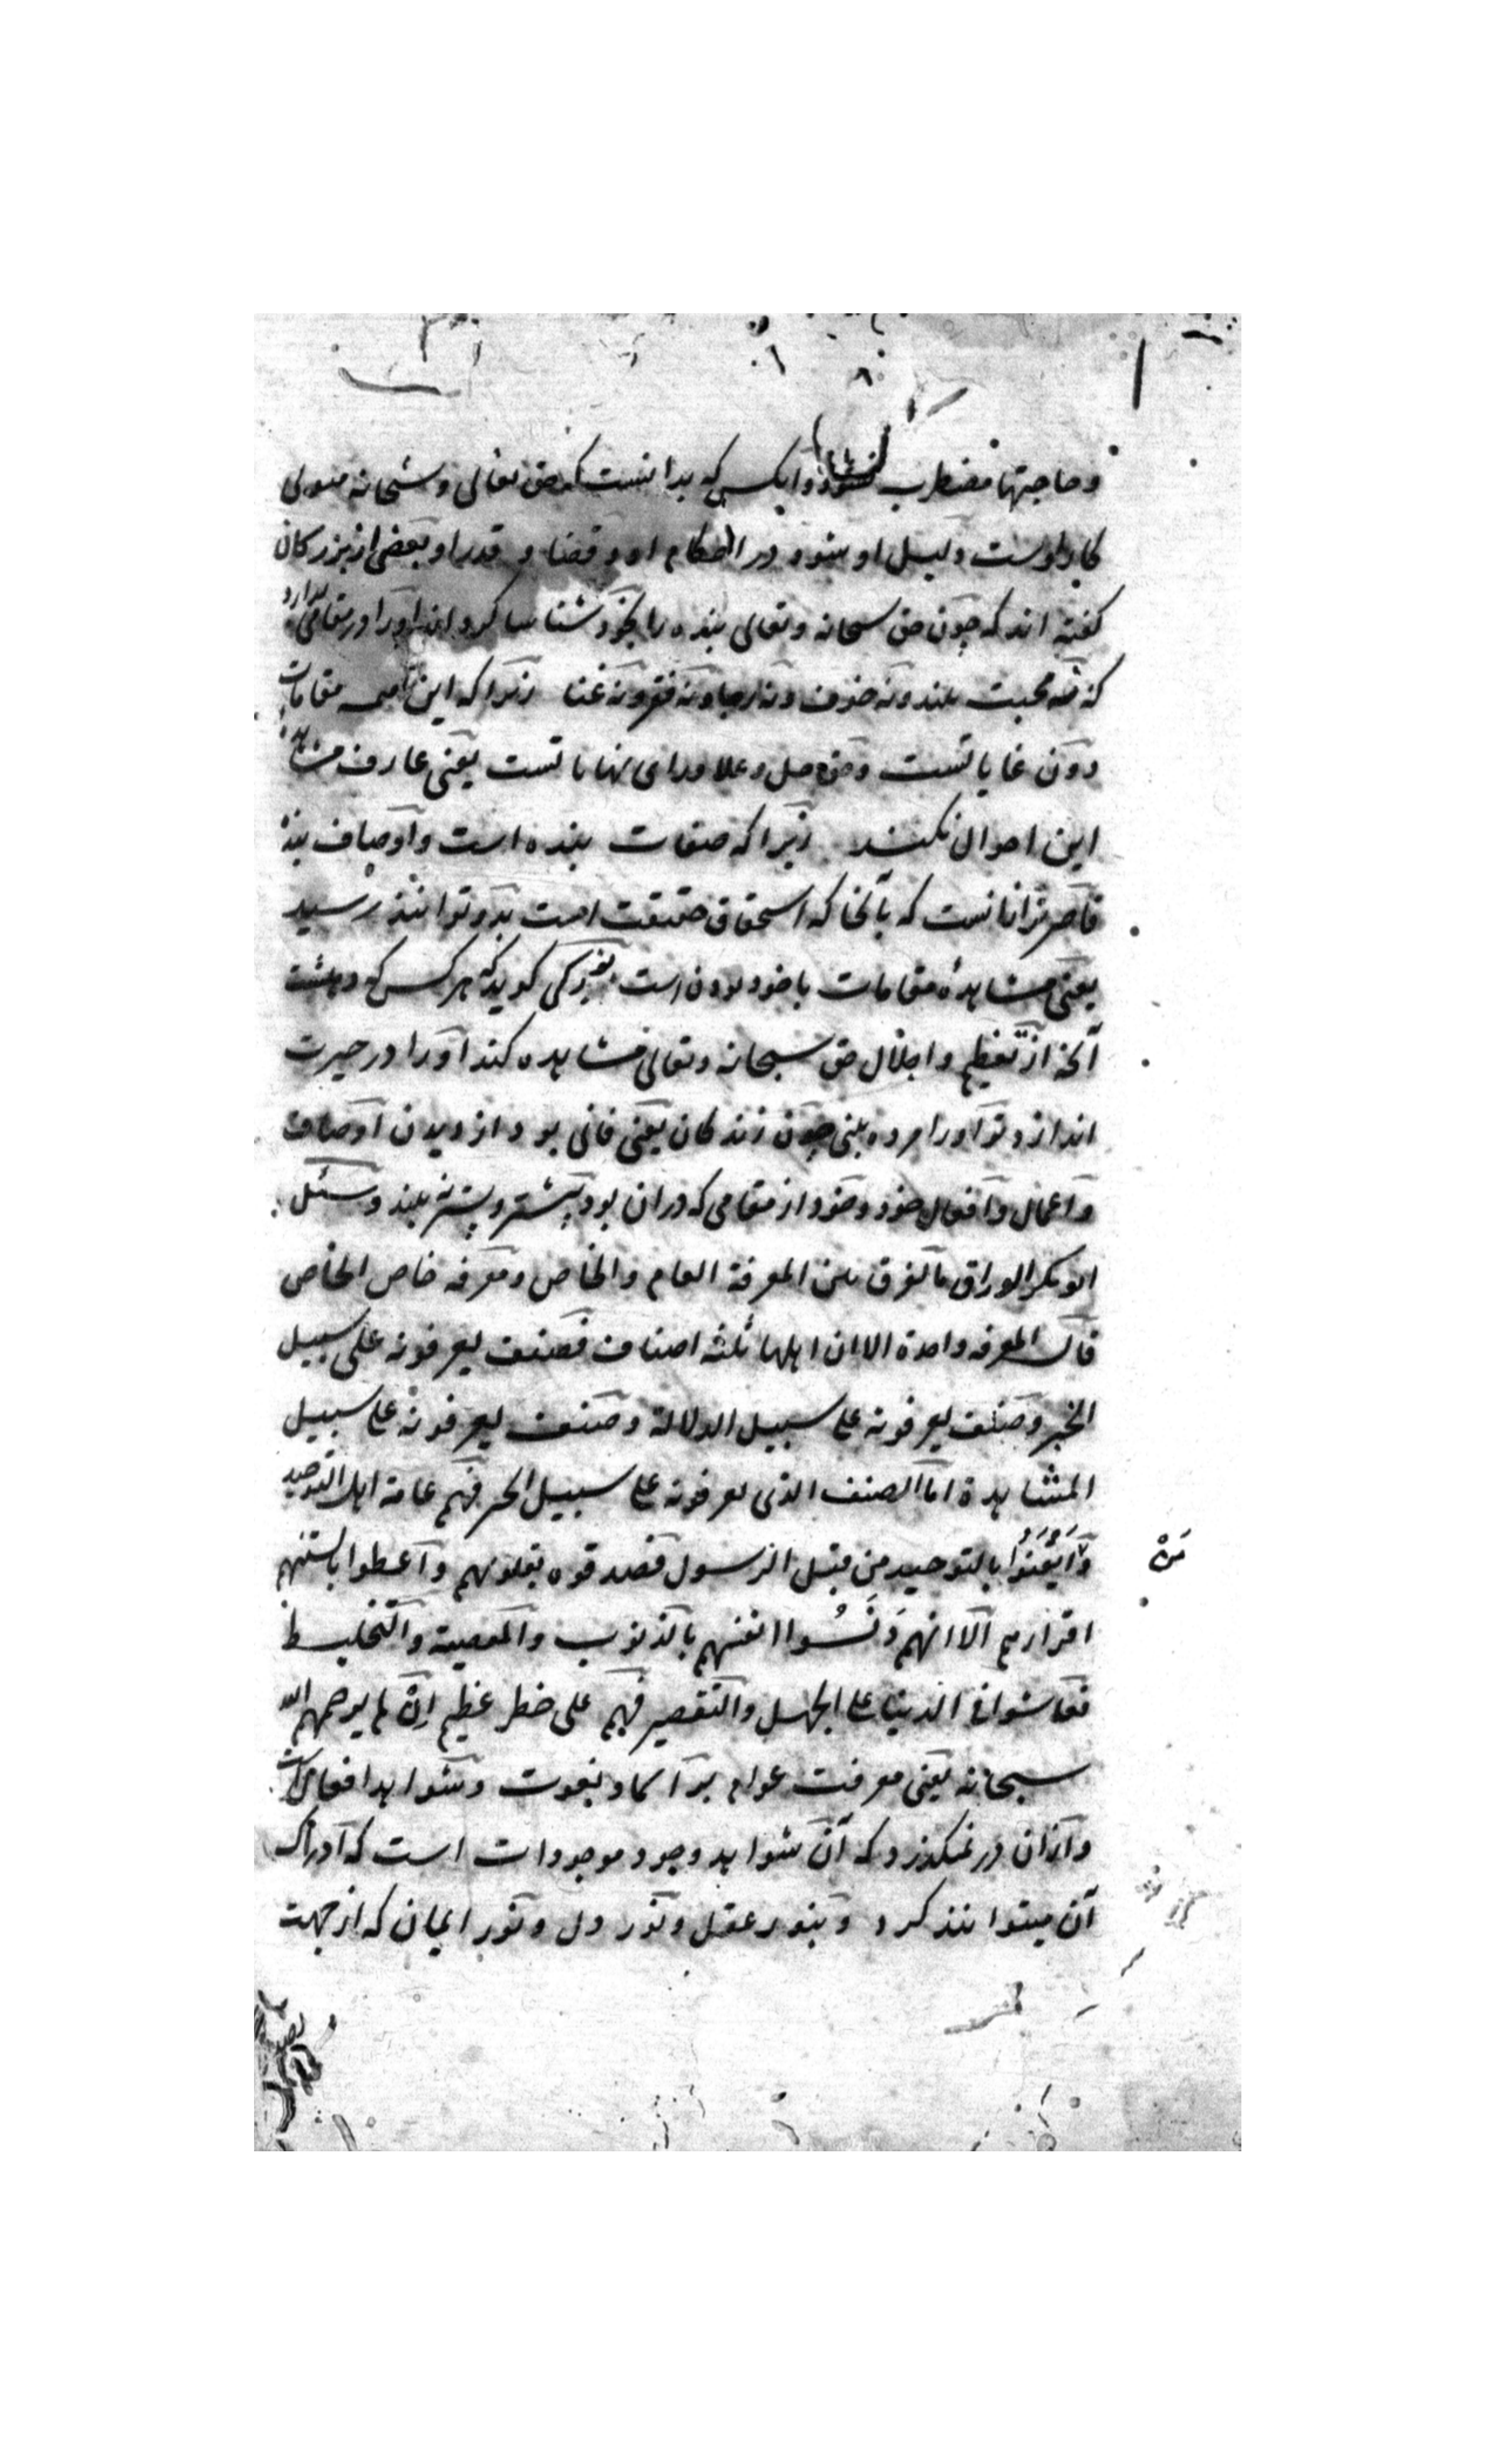 و حاجتها مضطرب نشود و انکس که بدانست که حق تعالی و سبحانه متولی
کار اوست دلیل او شود در احکام او و قضا و قدر او بعضی از بزرکان
کفته اند که چون حق سبحانه و تعالی بنده را بخود شناسا کرداند او را در مقامی بدارد
که نه محبت بیند و نه خوف و نه رجا و نه فقر و نه غنا زیرا که این همه مقامات
دون غایاتست و حق جل و علا ورای نهایاتست یعنی عارف مشاهده
این احوال نکند زیرا که صفات بنده است و اوصاف بنده
قاصرتر ازانست که بآنجا که استحقاق حقیقت است بدو توانند رسید
یعنی مشاهده مقامات با خود بودن است بزرکی کوید که هر کس که دهشت
آنچه از تعظیم و اجلال حق سبحانه و تعالی مشاهده کند او را در حیرت
اندازد تو او را مرده بینی چون زندکان یعنی فانی بود از دیدن اوصاف
و اعمال و افعال خود و خود از مقامی که دران بود پیشتر و پستر نه بیند و سئل
ابو بکر الوراق ما الفرق بین المعرفة العام والخاص و معرفه خاص الخاص
قال المعرفه واحدة الا ان اهلها ثلثه اصناف فصنف یعرفونه علی سبیل
الخبر و صنف یعرفونه علی سبیل الدلالة و صنف یعرفونه علی سبیل
المشاهدة اما الصنف الذی یعرفونه علی سبیل الخبر فهم عامة اهل التوحید
و ایقنوا بالتوحید من قبل الرسول فصدقوه بقلوبهم و اعطوا بالسنتهم
اقرارهم الا انهم دنسوا انفسهم بالذنوب والمعصیة والتخلیط
فعاشوا فی الدنیا علی الجهل والتقصیر فهم علی خطر عظیم ان لم یرحمهم الله
سبحانه یعنی معرفت عوام بر اسما و نعوت و شواهد افعال است
و ازان در نمیکذرد که آن شواهد وجود موجودات است که ادراک
آن میتوانند کرد و بنور عقل و نور دل و نور ایمان که از جهت